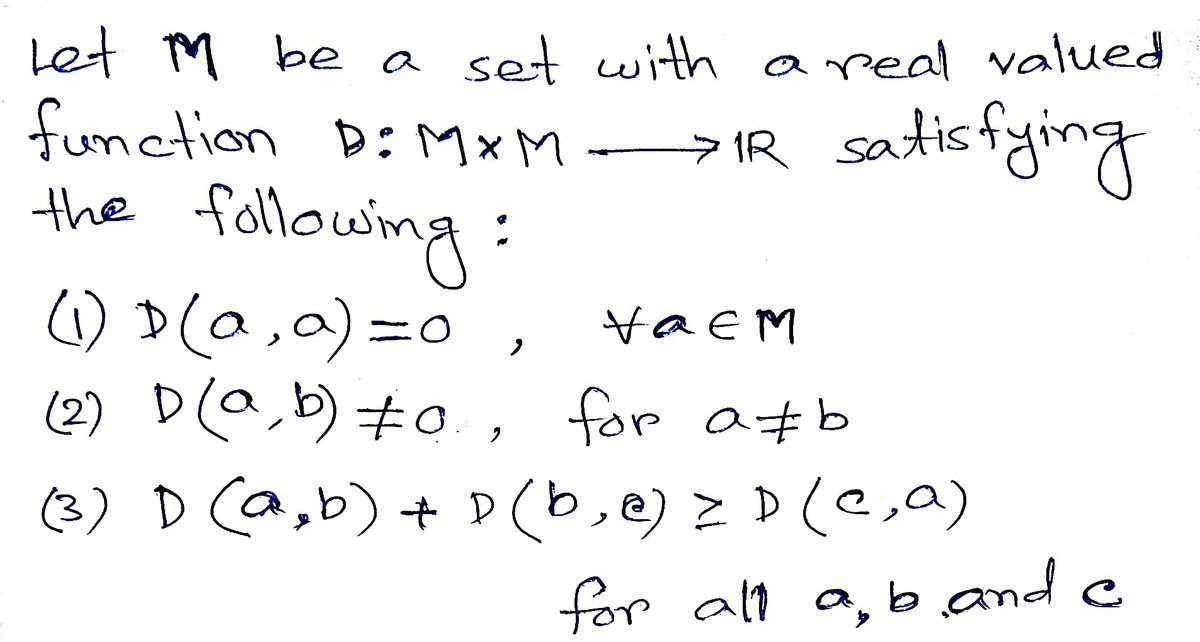 Let M be a set with a real valued
function D: M×M ⟶ ℝ satisfying
the following :
(1) D(a,a)=0 , ∀a∈M
(2) D(a,b)≠0 , for a≠b
(3) D(a,b) + D(b,c) ≥ D(c,a)
for all a, b and c